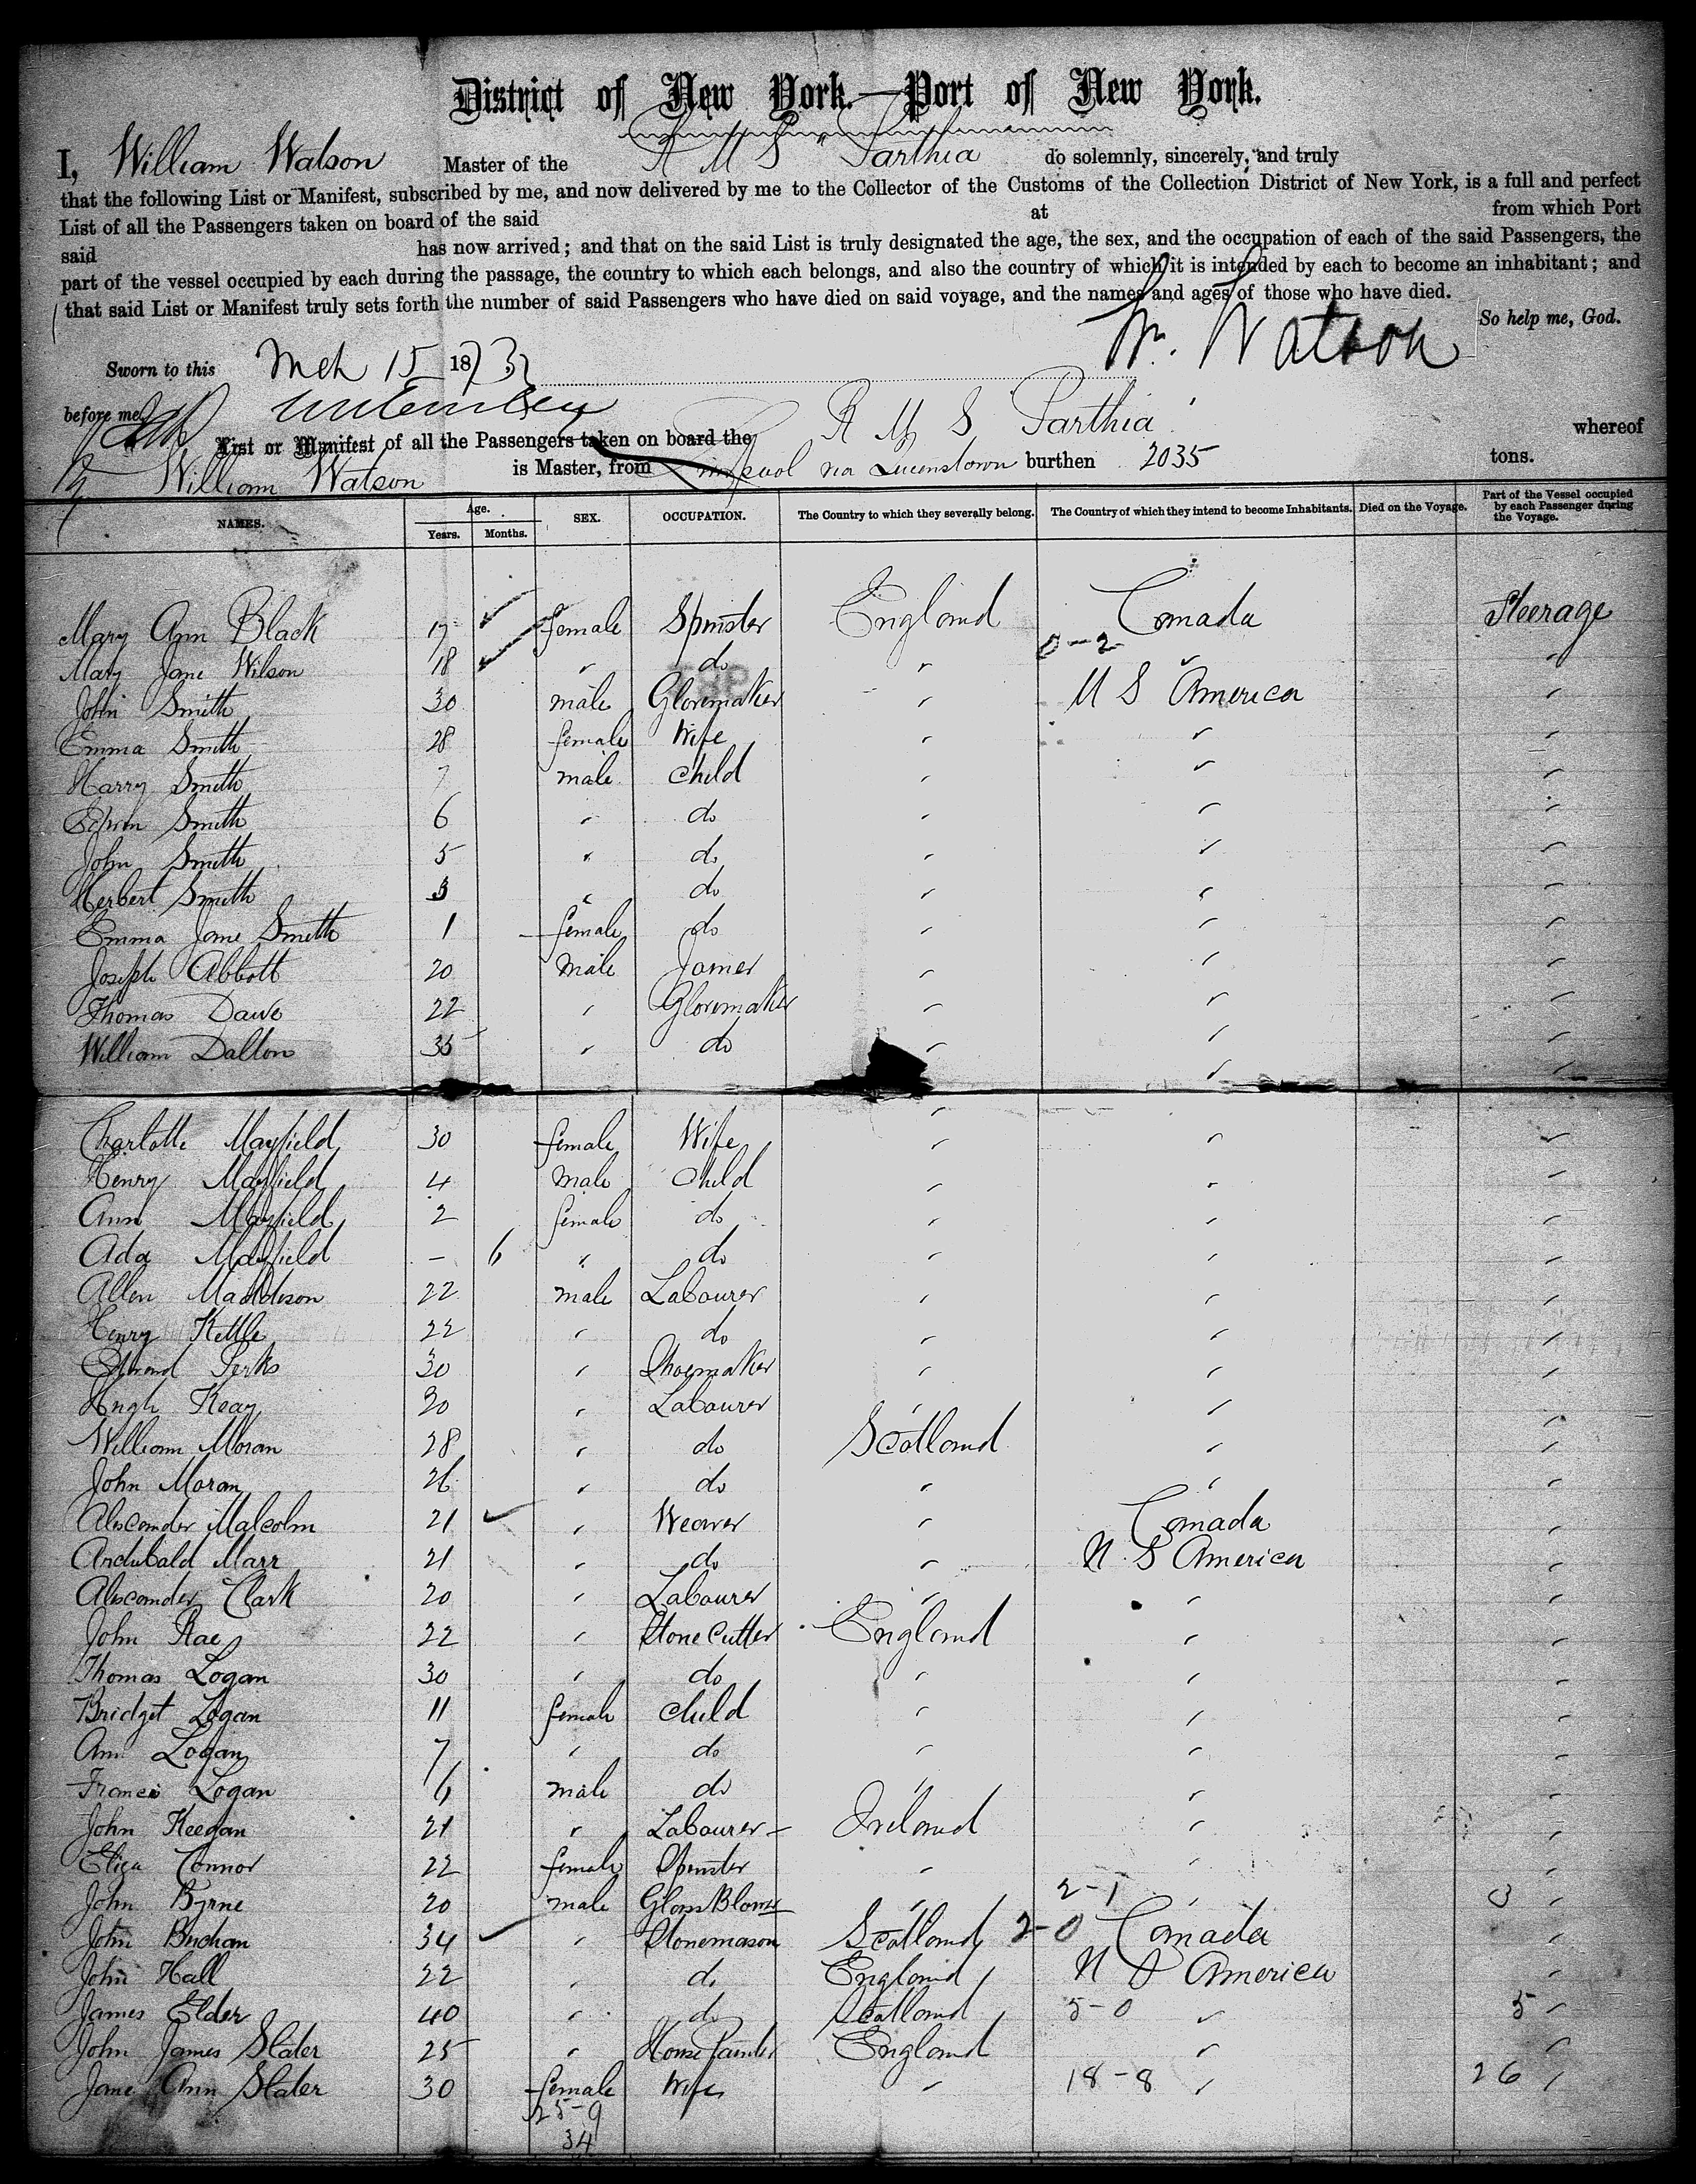 District of New York.—Port of New York.
I, William Watson Master of the R M S "Parthia do solemnly, sincerely, and truly
that the following List or Manifest, subscribed by me, and now delivered by me to the Collector of the Customs of the Collection District of New York, is a full and perfect
List of all the Passengers taken on board of the said at from which Port
said has now arrived; and that on the said List is truly designated the age, the sex, and the occupation of each of the said Passengers, the
part of the vessel occupied by each during the passage, the country to which each belongs, and also the country of which it is intended by each to become an inhabitant; and
that said List or Manifest truly sets forth the number of said Passengers who have died on said voyage, and the names and ages of those who have died.
So help me, God.
Wm. Watson
Sworn to this Mch 15 1873
before me
List or Manifest of all the Passengers taken on board the R M S Parthia whereof
William Watson is Master, from Liverpool via Queenstown burthen 2035 tons.
NAMES. Age. Years. Months. SEX. OCCUPATION. The Country to which they severally belong. The Country of which they intend to become Inhabitants. Died on the Voyage. Part of the Vessel occupied by each Passenger during the Voyage.
Mary Ann Black 17 female Spinster England Canada Steerage
0-2
Mary Jane Wilson 18 " do " " "
John Smith 30 male Glovemaker " U S America "
Emma Smith 28 female Wife " " "
Harry Smith 7 male child " " "
Edwin Smith 6 " do " " "
John Smith 5 " do " " "
Herbert Smith 3 " do " " "
Emma Jane Smith 1 female do " " "
Joseph Abbott 20 male Joiner " " "
Thomas Dawe 22 " Glovemaker " " "
William Dalton 35 " do " " "
Charlotte Mayfield 30 female Wife " " "
Henry Mayfield 4 male Child " " "
Ann Mayfield 2 female do " " "
Ada Mayfield - 6 " do " " "
Allen Maddeson 22 male Labourer " " "
Henry Kettle 22 " do " " "
Edmond Perks 30 " Shoemaker " " "
Hugh Keay 20 " Labourer " " "
William Moran 28 " do Scotland " "
John Moran 26 " do " " "
Alexander Malcolm 21 " Weaver " Canada "
Archibald Marr 21 " do " U S America "
Alexander Clark 20 " Labourer " " "
John Rae 22 " Stone Cutter England " "
Thomas Logan 30 " do " " "
Bridget Logan 11 female child " " "
Ann Logan 7 " do " " "
Francis Logan 6 male do " " "
John Keegan 21 " Labourer Ireland " "
Eliza Connor 22 female Spinster " " "
2-1
John Byrne 20 male Glass Blower " " 3 "
John Buchan 34 " Stonemason Scotland 2-0 Canada "
John Hall 22 " do England U S America "
James Elder 40 " do Scotland 5-0 " 5 "
John James Slater 25 " House Painter England " "
Jane Ann Slater 30 female Wife " 18-8 " 26 "
25-9
34